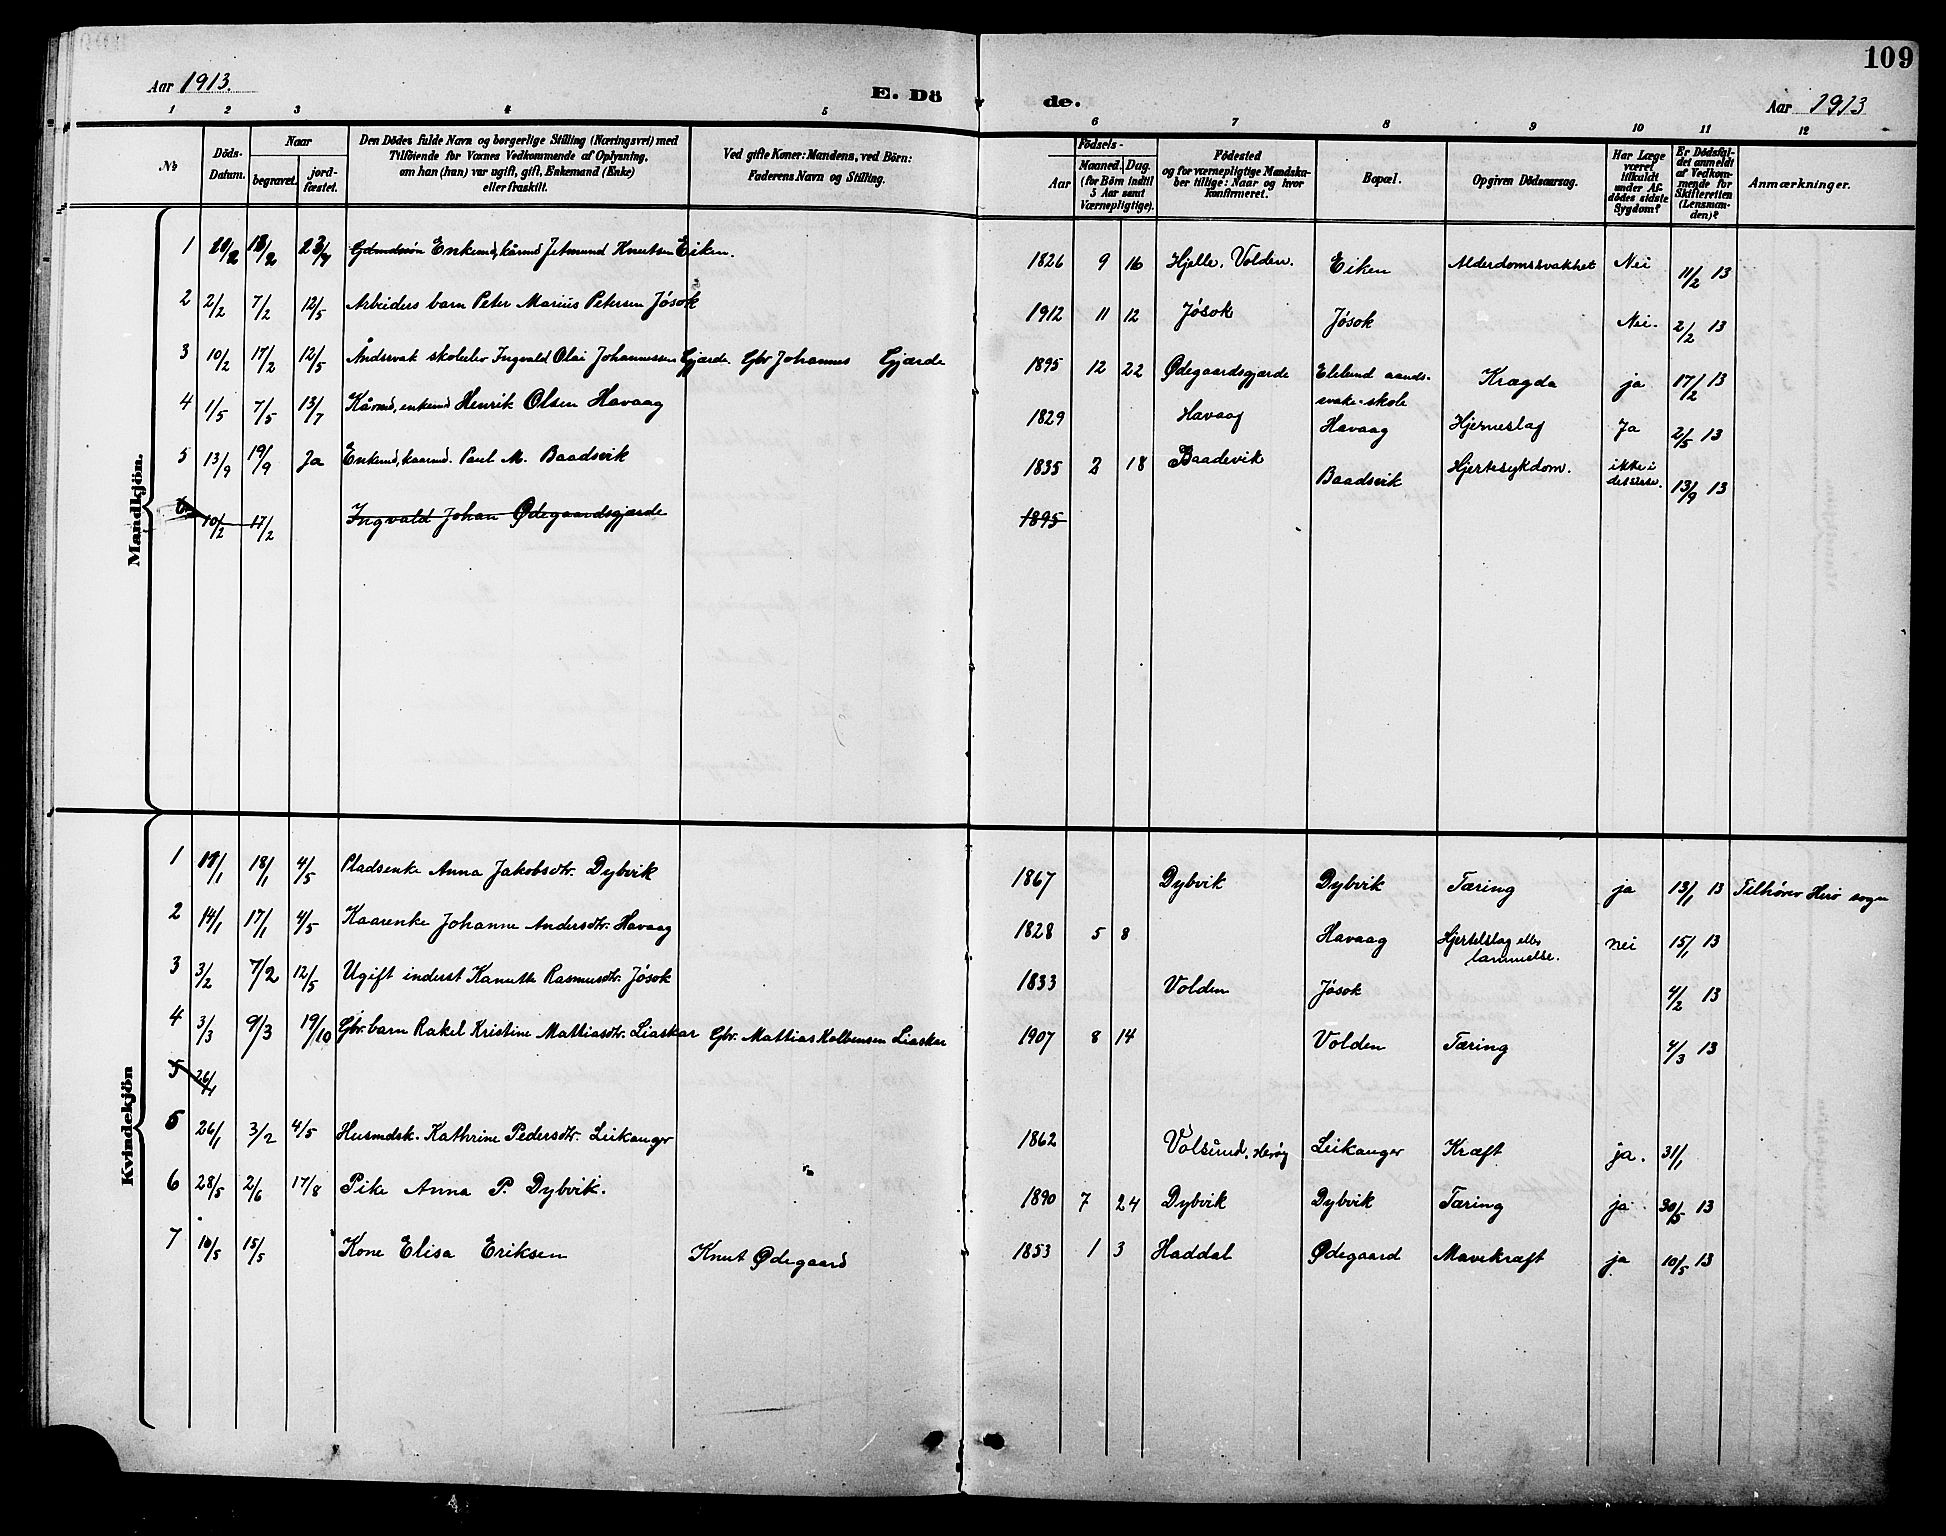 109
Aar 1913. E. Dö de. Aar 1913
1 2 3 4 5 6 7 8 9 10 11 12
No
Döds-Datum.
Naar
begravet.
jord-fæstet.
Den Dödes fulde Navn og borgerlige Stilling (Næringsvei) med
Tilföiende for Voxnes Vedkommende af Oplysning,
om han (hun) var ugift, gift, Enkemand (Enke)
eller fraskilt.
Ved gifte Koner: Mandens, ved Börn:
Faderens Navn og Stilling.
Födsels-
Aar
Maaned. Dag.
(for Börn indtil
5 Aar samt
Værnepligtige).
Födested
og for værnepligtige Mandska-
ber tillige: Naar og hvor
konfirmeret.
Bopæl.
Opgiven Dödsaarsag.
Har Læge
været
tilkaldt
under Af-
dödes sidste
Sygdom?
Er Dödsfal-
det anmeldt
af Vedkom-
mende for
Skifteretten
(Lensman-
den)?
Anmærkninger.
Mandkjön.
1 Enkemd, kårmd Jetmund Knutsen Eiken. 1826 9 16 Hjelle, Volden. Eiken Alderdomssvakhet Nei 11/2 13
2 2/2 7/2 12/5 Arbeiders barn Peter Marius Petersen Jøsok 1912 11 12 Jøsok Jøsok Nei. 2/2 13
3 10/2 17/2 12/5 Åndssvak skoleelev Ingvald Olai Johannessen Gjærde Gbr Johannes Gjærde 1895 12 22 Ødegaardsgjærde Eklund aands-
svake-skole Krægda ja 17/2 13
4 1/5 7/5 13/7 Kårmd, enkemd Henrik Olsen Havaag 1829 Havaag Havaag Hjerneslag Ja 2/5 13
5 13/9 19/9 Ja Enkemd, kaarmd. Paul M. Baadsvik 1835 2 18 Baadsvik Baadsvik Hjertesykdom. ikke i
13/9 13
6 10/2 17/2 Ingvald Johan Ødegaardsgjærde 1895
Kvindekjön
1 18/1 4/5 Pladsenke Anna Jakobsdtr. Dybvik 1867 Dybvik Dybvik Tæring ja 13/1 13 Tilhører Herø sogn
2 14/1 17/1 4/5 Kaarenke Johanne Andersdtr. Havaag 1828 5 8 Havaag Hjerteslag eller
lammelse. nei 15/1 13
3 3/2 7/2 12/5 Ugift inderst Kanutte Rasmusdtr. Jøsok 1833 Volden Jøsok 4/2 13
4 3/3 9/3 19/10 Gbr. barn Rakel Kristine Mathiasdtr. Liaskar Gbr. Mathias Kolbensen Liaskar 1907 8 14 Volden Tæring 4/3 13
5 26/1
5 26/1 3/2 4/5 Husmdsk. Kathrine Pedersdtr. Leikanger 1862 Volsund, Herøy Leikanger Kræft ja. 31/1
6 28/5 2/6 17/8 Pike Anna P. Dybvik. 1890 7 24 Dybvik Dybvik Tæring ja 30/5 13
7 10/5 15/5 Kone Elisa Eriksen Knut Ødegaard 1853 1 3 Haddal Ødegaard Mavekræft ja 10/5 13